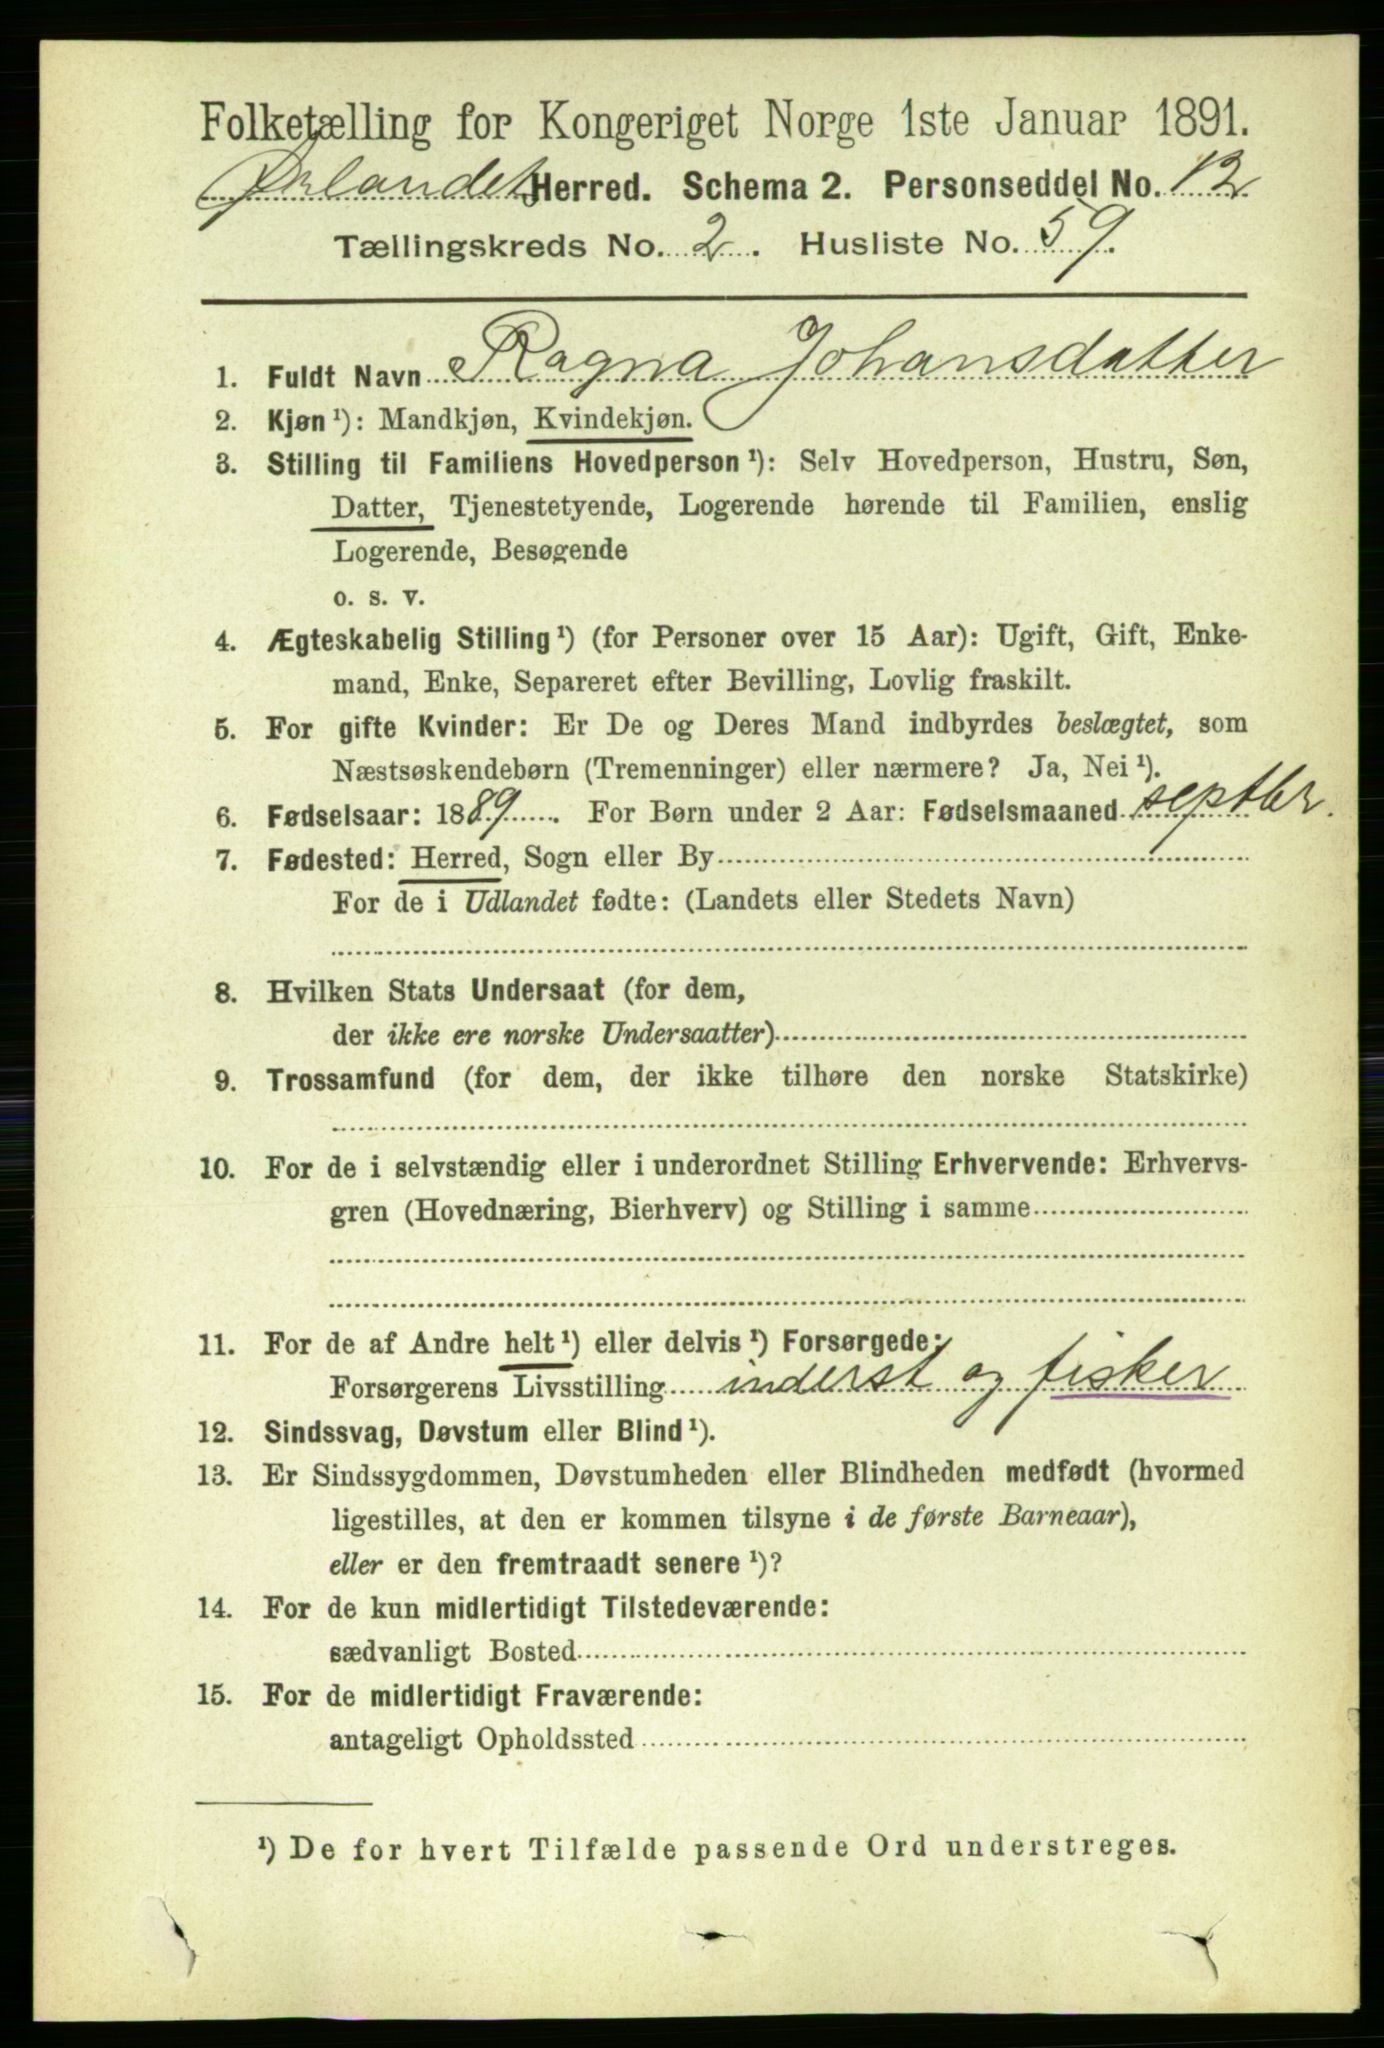 Folketælling for Kongeriget Norge 1ste Januar 1891.
Ørlandet Herred. Schema 2. Personseddel No. 12
Tællingskreds No. 2. Husliste No. 59.
1. Fuldt Navn Ragna Johansdatter
2. Kjøn¹): Mandkjøn, Kvindekjøn.
3. Stilling til Familiens Hovedperson¹): Selv Hovedperson, Hustru, Søn,
Datter, Tjenestetyende, Logerende hørende til Familien, enslig
Logerende, Besøgende
o. s. v.
4. Ægteskabelig Stilling¹) (for Personer over 15 Aar): Ugift, Gift, Enke-
mand, Enke, Separeret efter Bevilling, Lovlig fraskilt.
5. For gifte Kvinder: Er De og Deres Mand indbyrdes beslægtet, som
Næstsøskendebørn (Tremenninger) eller nærmere? Ja, Nei¹).
6. Fødselsaar: 1889. For Børn under 2 Aar: Fødselsmaaned septbr.
7. Fødested: Herred, Sogn eller By
For de i Udlandet fødte: (Landets eller Stedets Navn)
8. Hvilken Stats Undersaat (for dem,
der ikke ere norske Undersaatter)
9. Trossamfund (for dem, der ikke tilhøre den norske Statskirke)
10. For de i selvstændig eller i underordnet Stilling Erhvervende: Erhvervs-
gren (Hovednæring, Bierhverv) og Stilling i samme
11. For de af Andre helt¹) eller delvis¹) Forsørgede:
Forsørgerens Livsstilling inderst og fisker
12. Sindssvag, Døvstum eller Blind¹).
13. Er Sindssygdommen, Døvstumheden eller Blindheden medfødt (hvormed
ligestilles, at den er kommen tilsyne i de første Barneaar),
eller er den fremtraadt senere¹)?
14. For de kun midlertidigt Tilstedeværende:
sædvanligt Bosted
15. For de midlertidigt Fraværende:
antageligt Opholdssted
¹) De for hvert Tilfælde passende Ord understreges.